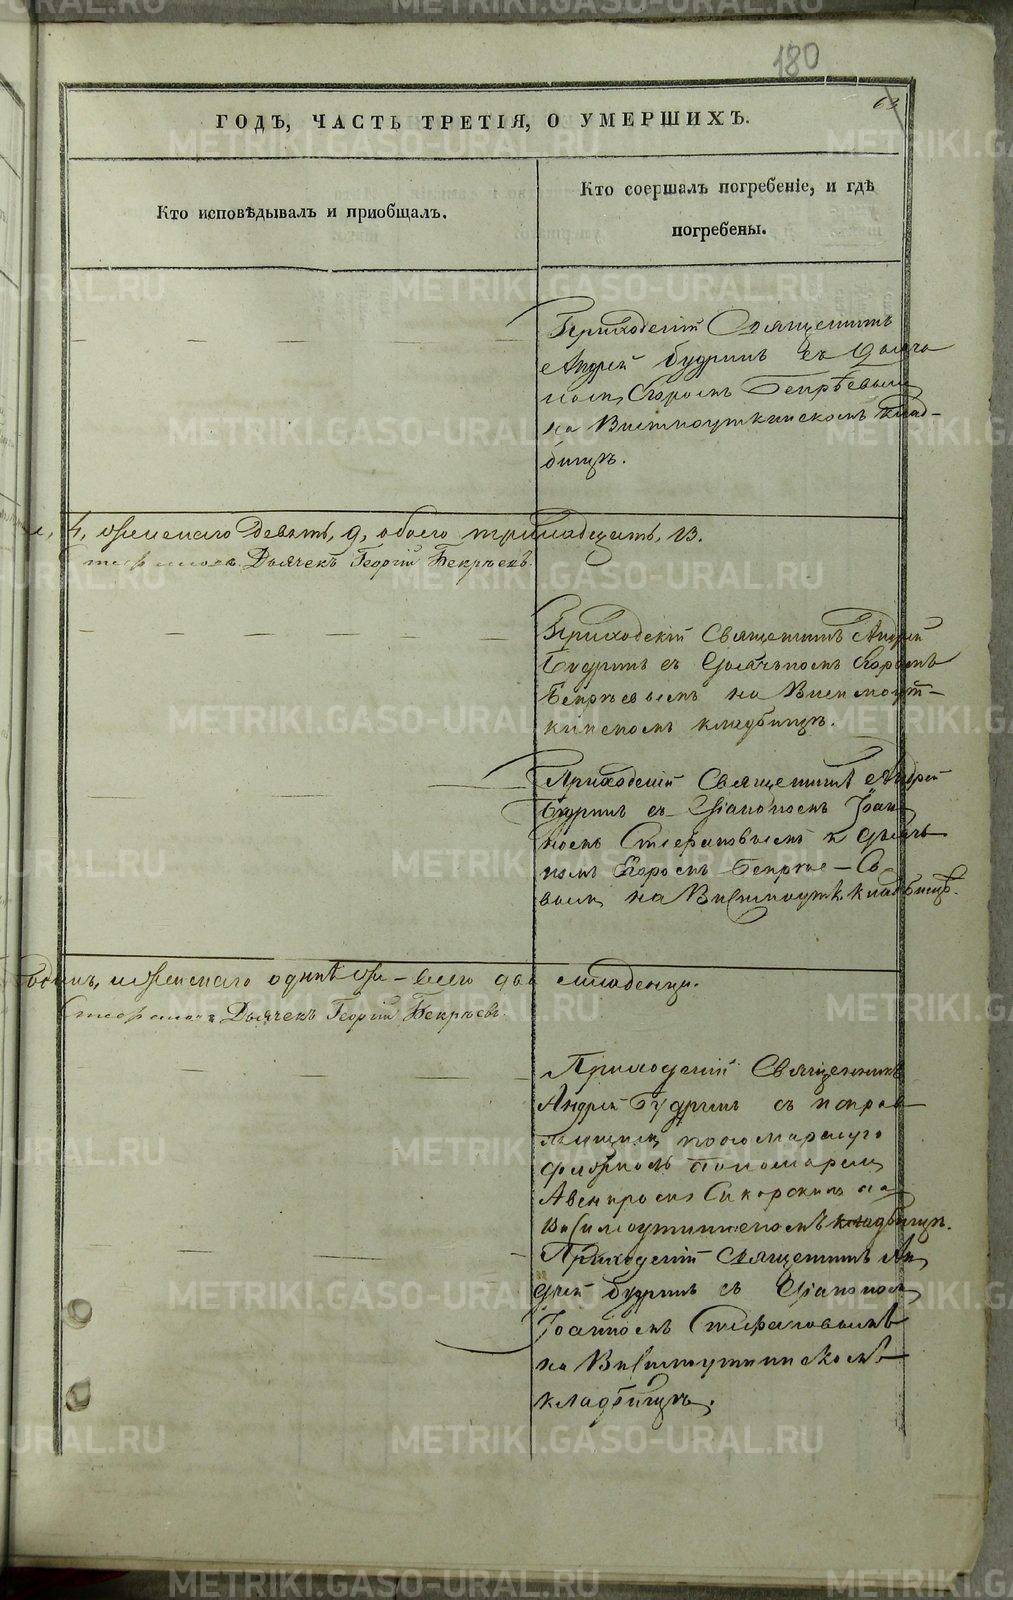 180
63
ГОДЪ, ЧАСТЬ ТРЕТІЯ, О УМЕРШИХЪ.
Кто исповѣдывалъ и приобщалъ.
Кто соершалъ погребеніе, и гдѣ
погребены.
Приходскій Священникъ
Андрей Будринъ съ Дьяч
комъ Егоромъ Бекрѣевымъ
на Висимоуткинскомъ клад-
бищѣ.
4, женскаго девять, 9, обоего тринадцать, 13.
Дьячекъ Георгій Бекрѣевъ.
Приходскій Священникъ Андрей
Будринъ съ Дьячькомъ Егоромъ
Бекрѣевымъ на Висимоут-
кинскомъ кладбищѣ.
Приходскій Священникъ Андрей
Будринъ съ Діакономъ Іоан
номъ Стефановымъ и дьячь
комъ Егоромъ Бекрѣе-
вымъ на Висимоутк. кладбищѣ.
одинъ, и женскаго одна же – всего два младенца.
Дьячекъ Георгій Бекрѣевъ.
Приходскій Священникъ
Андрей Будринъ съ исправ
пономаремъ
на
Висимоуткинскомъ кладбищѣ.
Приходскій Священникъ Ан
дрей Будринъ съ Діакономъ
Іоанномъ Стефановымъ
на Висимоуткинскомъ
кладбищѣ.
METRIKI.GASO-URAL.RU